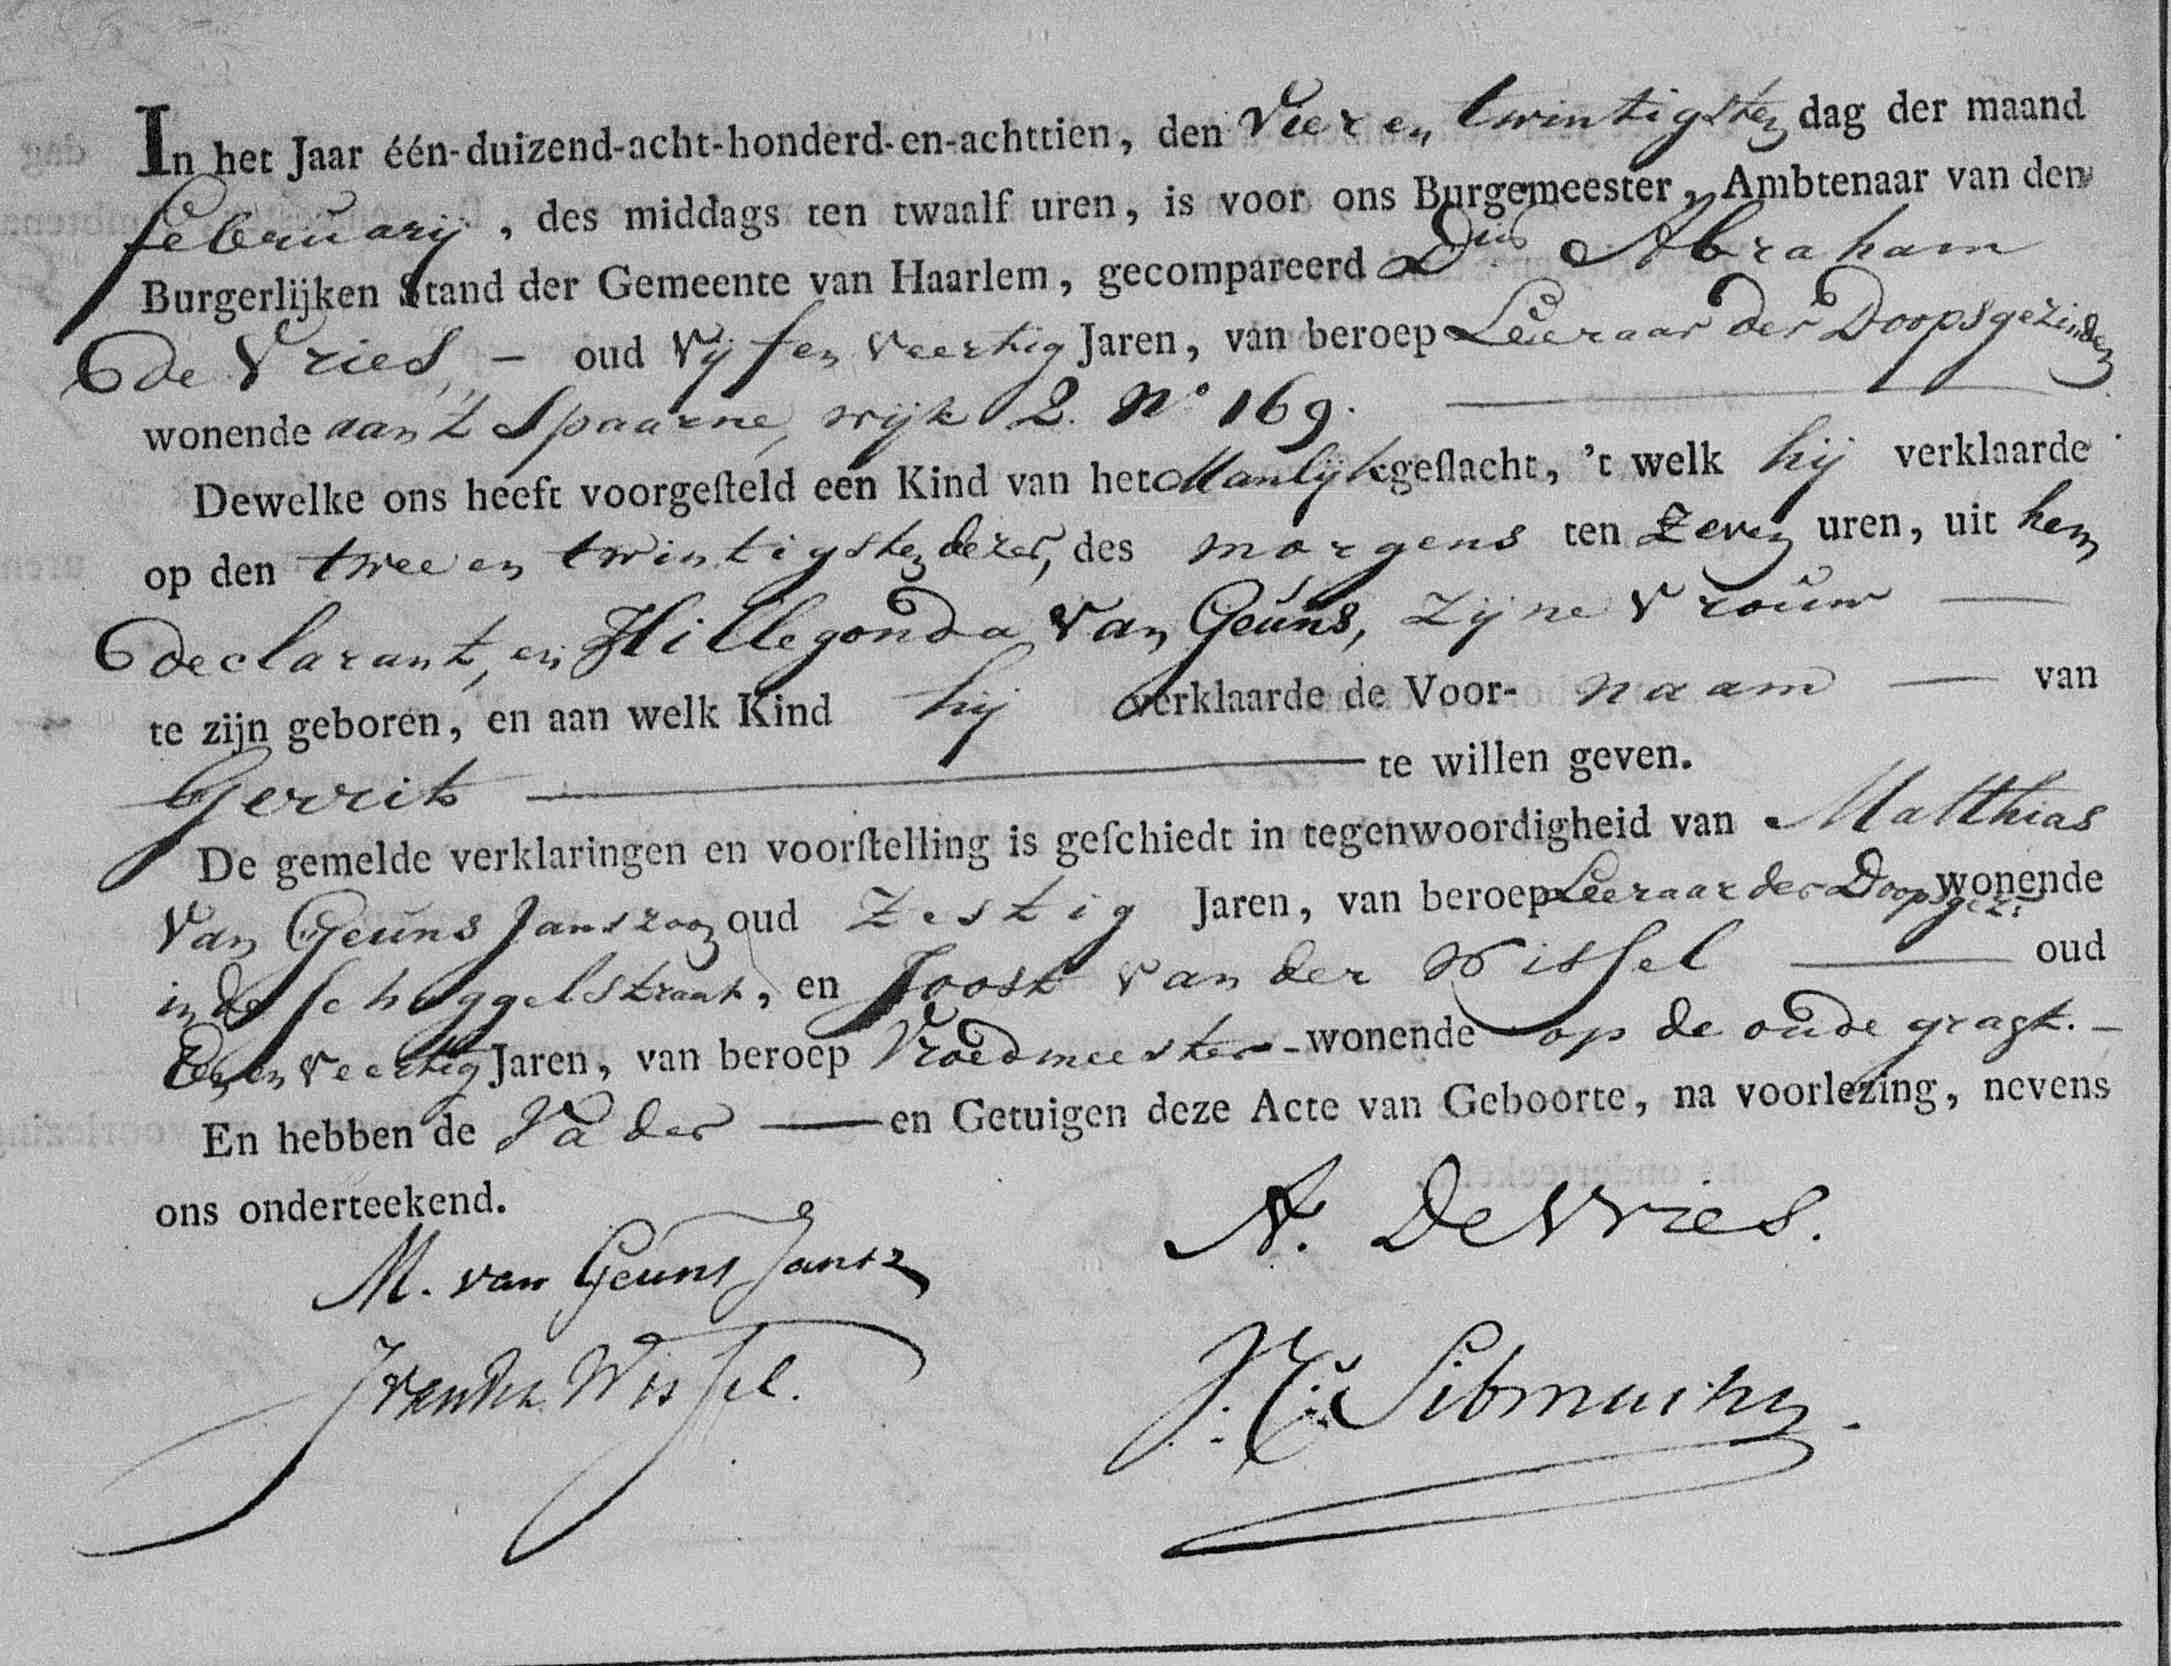 In het Jaar één-duizend-acht-honderd-en-achttien, den Vier en twintigsten dag der maand
februarij, des middags ten twaalf uren, is voor ons Burgemeester, Ambtenaar van den
Burgerlijken Stand der Gemeente van Haarlem, gecompareerd Dus Abraham
de Vries, - oud Vijf en Veertig Jaren, van beroep Leeraar der Doopsgezinden
wonende aan 't Spaarne, wijk 2. No 169.
Dewelke ons heeft voorgesteld een Kind van het Manlijk geslacht, 't welk hij verklaarde
op den twee en twintigsten dezer, des morgens ten Zeven uren, uit hem
declarant, en Hillegonda van Geuns, Zijne Vrouw —
te zijn geboren, en aan welk Kind hij verklaarde de Voor- naam — van
Gerrit — te willen geven.
De gemelde verklaringen en voorstelling is geschiedt in tegenwoordigheid van Matthias
van Geuns Janszoon oud Zestig Jaren, van beroep Leeraar der Doopsgezi wonende
in de Schaggelstraat, en Joost van der Wissel — oud
Een en Veertig Jaren, van beroep Vroedmeester - wonende op de oude gragt. -
En hebben de Vader — en Getuigen deze Acte van Geboorte, na voorlezing, nevens
ons onderteekend.
A. De Vries.
M. van Geuns Jansz
J van der Wissel.